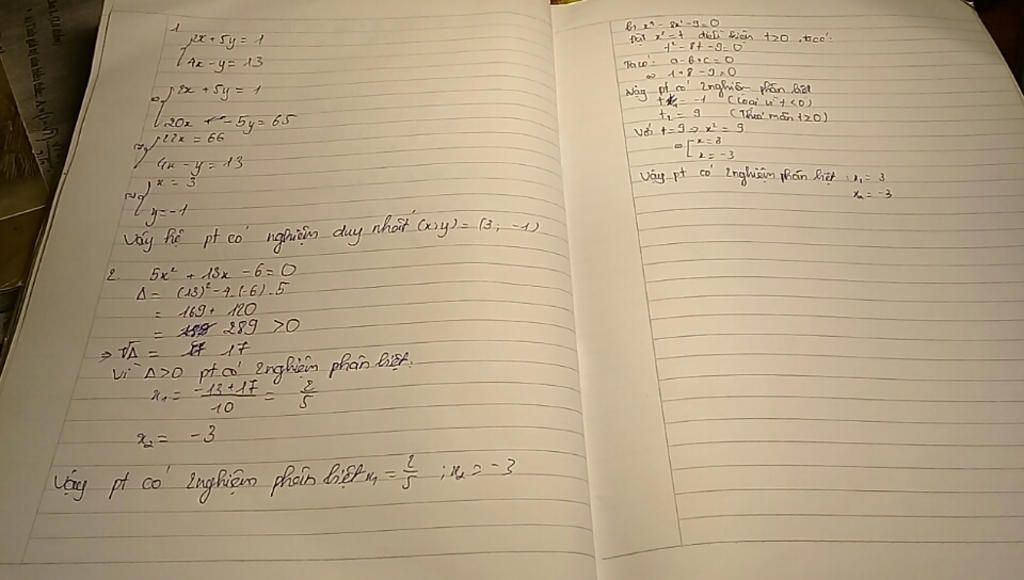 1
2x + 5y = 1
4x - y = 13
⇔ 2x + 5y = 1
20x - 5y = 65
⇔ 22x = 66
4x - y = 13
⇔ x = 3
y = -1
Vậy hệ pt có nghiệm duy nhất (x;y) = (3; -1)
2. 5x² + 13x - 6 = 0
Δ = (13)² - 4.(-6).5
= 169 + 120
= 289 > 0
⇒ √Δ = 17
Vì Δ>0 pt có 2 nghiệm phân biệt.
x₁ = (-13+17)/10 = 2/5
x₂ = -3
Vậy pt có 2 nghiệm phân biệt x₁ = 2/5 ; x₂ = -3
b, x⁴ - 8x² - 9 = 0
Đặt x² = t điều kiện t≥0, ta có:
t² - 8t - 9 = 0
Ta có: a - b + c = 0
⇔ 1 + 8 - 9 = 0
Vậy pt có 2 nghiệm phân biệt
t₁ = -1 (Loại vì t<0)
t₂ = 9 (Thoả mãn t≥0)
Với t = 9 ⇒ x² = 9
⇔ x = 3
x = -3
Vậy pt có 2 nghiệm phân biệt : x₁ = 3
x₂ = -3